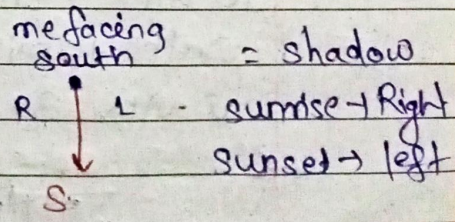 me facing
south = shadow
R L - sunrise → Right
sunset → left
S.